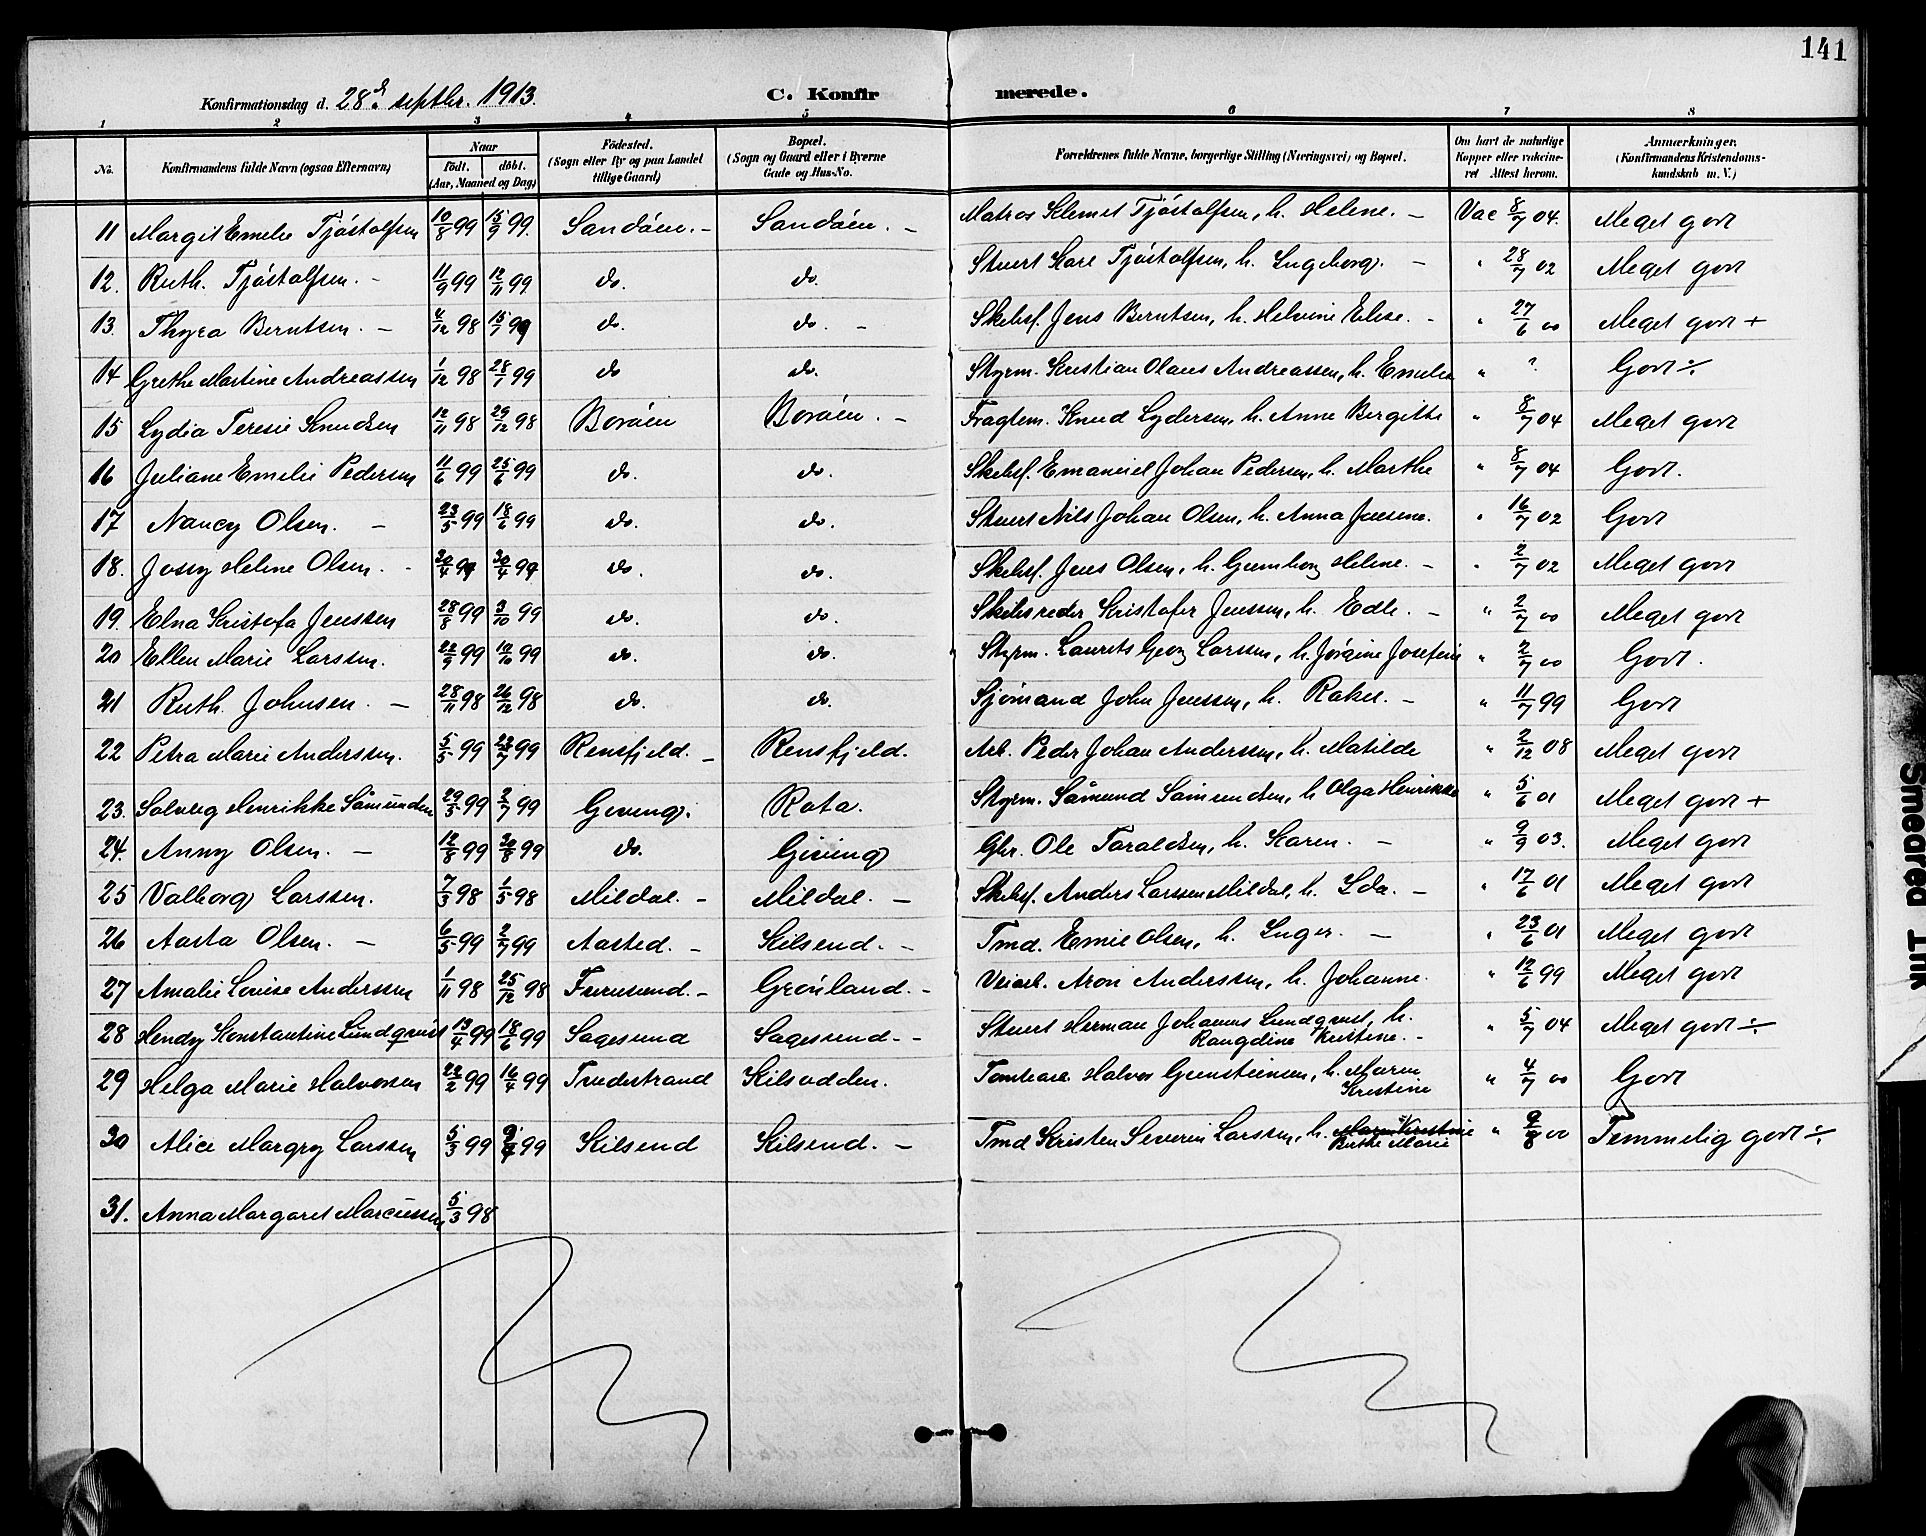 141
Konfirmationsdag d. 28de septbr. 1913. C. Konfirmerede.
1 2 3 4 5 6 7 8
No. Konfirmandens fulde Navn (ogsaa Efternavn) Naar født. døbt. (Aar, Maaned og Dag) Fødested. (Sogn eller By og paa Landet tillige Gaard) Bopæl. (Sogn og Gaard eller i Byerne Gade og Hus-No. Forældrenes fulde Navne, borgerlige Stilling (Næringsvei) og Bopæl. Om havt de naturlige Kopper eller vakcineret Attest herom. Anmærkninger. (Konfirmandens Kristendomskundskab m. V.)
11 Margit Emelie Tjøstolfsen 10/8 99 15/9 99. Sandøen. - Sandøen. - Matros Klemet Tjøstolfsen, h. Helene. - Vac 8/7 04. Meget godt
12. Ruth. Tjøstolfsen. - 11/9 99 12/11 99 do. do. Stuert Kare Tjøstolfsen, h. Ingeborg. - " 28/7 02 Meget godt
13. Thyra Berntsen. - 4/12 98 15/1 99 do. do. - Skibsf. Jens Berntsen, h. Helvine Elise. - " 27/6 00 Meget godt +
14 Grethe Martine Andreassen 1/12 98 28/1 99 do do. Styrm. Kristian Olaus Andreassen, h. Emilie " ? Godt ÷
15 Lydia Teresie Knudsen 12/11 98 29/12 98 Borøen Borøen. - Fragtem. Knud Lydersen, h. Anne Bergitte " 8/7 04 Meget godt
16 Juliane Emelie Pedersen 11/6 99 25/6 99 do. do. Skibsf. Emanuel Johan Pedersen, h. Marthe " 8/7 04 Godt.
17 Nancy Olsen. - 23/5 99 18/6 99 do. do. Stuert Nils Johan Olsen, h. Anna Jensine. " 16/7 02 Godt
18. Jossy Helene Olsen. - 20/4 99 30/4 99 do. do. Skibsf. Jens Olsen, h. Gunborg Helene. - " 2/7 02 Meget godt
19. Elna Kristofa Jenssen 28/8 99 3/10 99 do. do. Skibsreder Kristofer Jenssen, h. Edle. - " 2/7 00 Meget godt
20 Ellen Marie Larssen. 22/9 99 10/10 99 do. do. Styrm. Laurits Georg Larssen, h. Jørgine Josefine " 2/7 00 Godt.
21 Ruth. Johnsen. - 28/11 98 26/12 98 do. do. Sjømand John Jenssen, h. Rakel. - " 11/7 99 Godt
22 Petra Marie Anderssen. 5/5 99 23/7 99 Rensfjeld. - Rensfjeld. Arb. Peder Johan Anderssen, h. Matilde " 2/12 08 Meget godt
23. Solveig Henrikke Såmundsen 29/5 99 2/7 99 Geving. Rota. Styrm. Såmund Såmundsen, h Olga Henrikke " 5/6 01 Meget godt +
24. Anny Olsen. - 12/8 99 20/8 99 do. Geving Gbr. Ole Taraldsen, h. Karen. - " 9/9 03. Meget godt
25 Valborg Larssen. 7/3 98 1/5 98 Mildal. - Mildal. - Skibsf. Anders Larssen Mildal, h. Ida. - " 17/6 01 Meget godt
26 Aasta Olsen. - 6/5 99 2/7 99 Aasted. - Kilsend. - Tmd. Emil Olsen, h. Inger. - " 23/6 01 Meget godt
27 Amalie Louise Anderssen 1/11 98 25/12 98 Furusund. - Grønland. - Veiarb. Aron Anderssen, h. Johanne. " 12/6 99 Meget godt
28 Hendy Konstantine Lundqvist 13/4 99 18/6 99 Sagesund Sagesund. - Stuert Herman Johannes Lundqvist, h. " 5/7 04 Meget godt ÷
Rangdine Kristine. -
29 Helga Marie Halvorsen 22/2 99 16/4 99 Tvedestrand Kilsodden. Tomtearb. Halvor Gunsteinsen, h. Maren " 4/7 00 Godt
Kristine
30 Alice Margry Larssen 5/3 99 9/4 99 Kilsend Kilsend. - Tmd Kristen Severin Larssen, h. Maren Kristine " 9/8 00 Temmelig godt ÷
Birthe Marie
31. Anna Margaret Marcussen 5/3 98
Smeared Ink